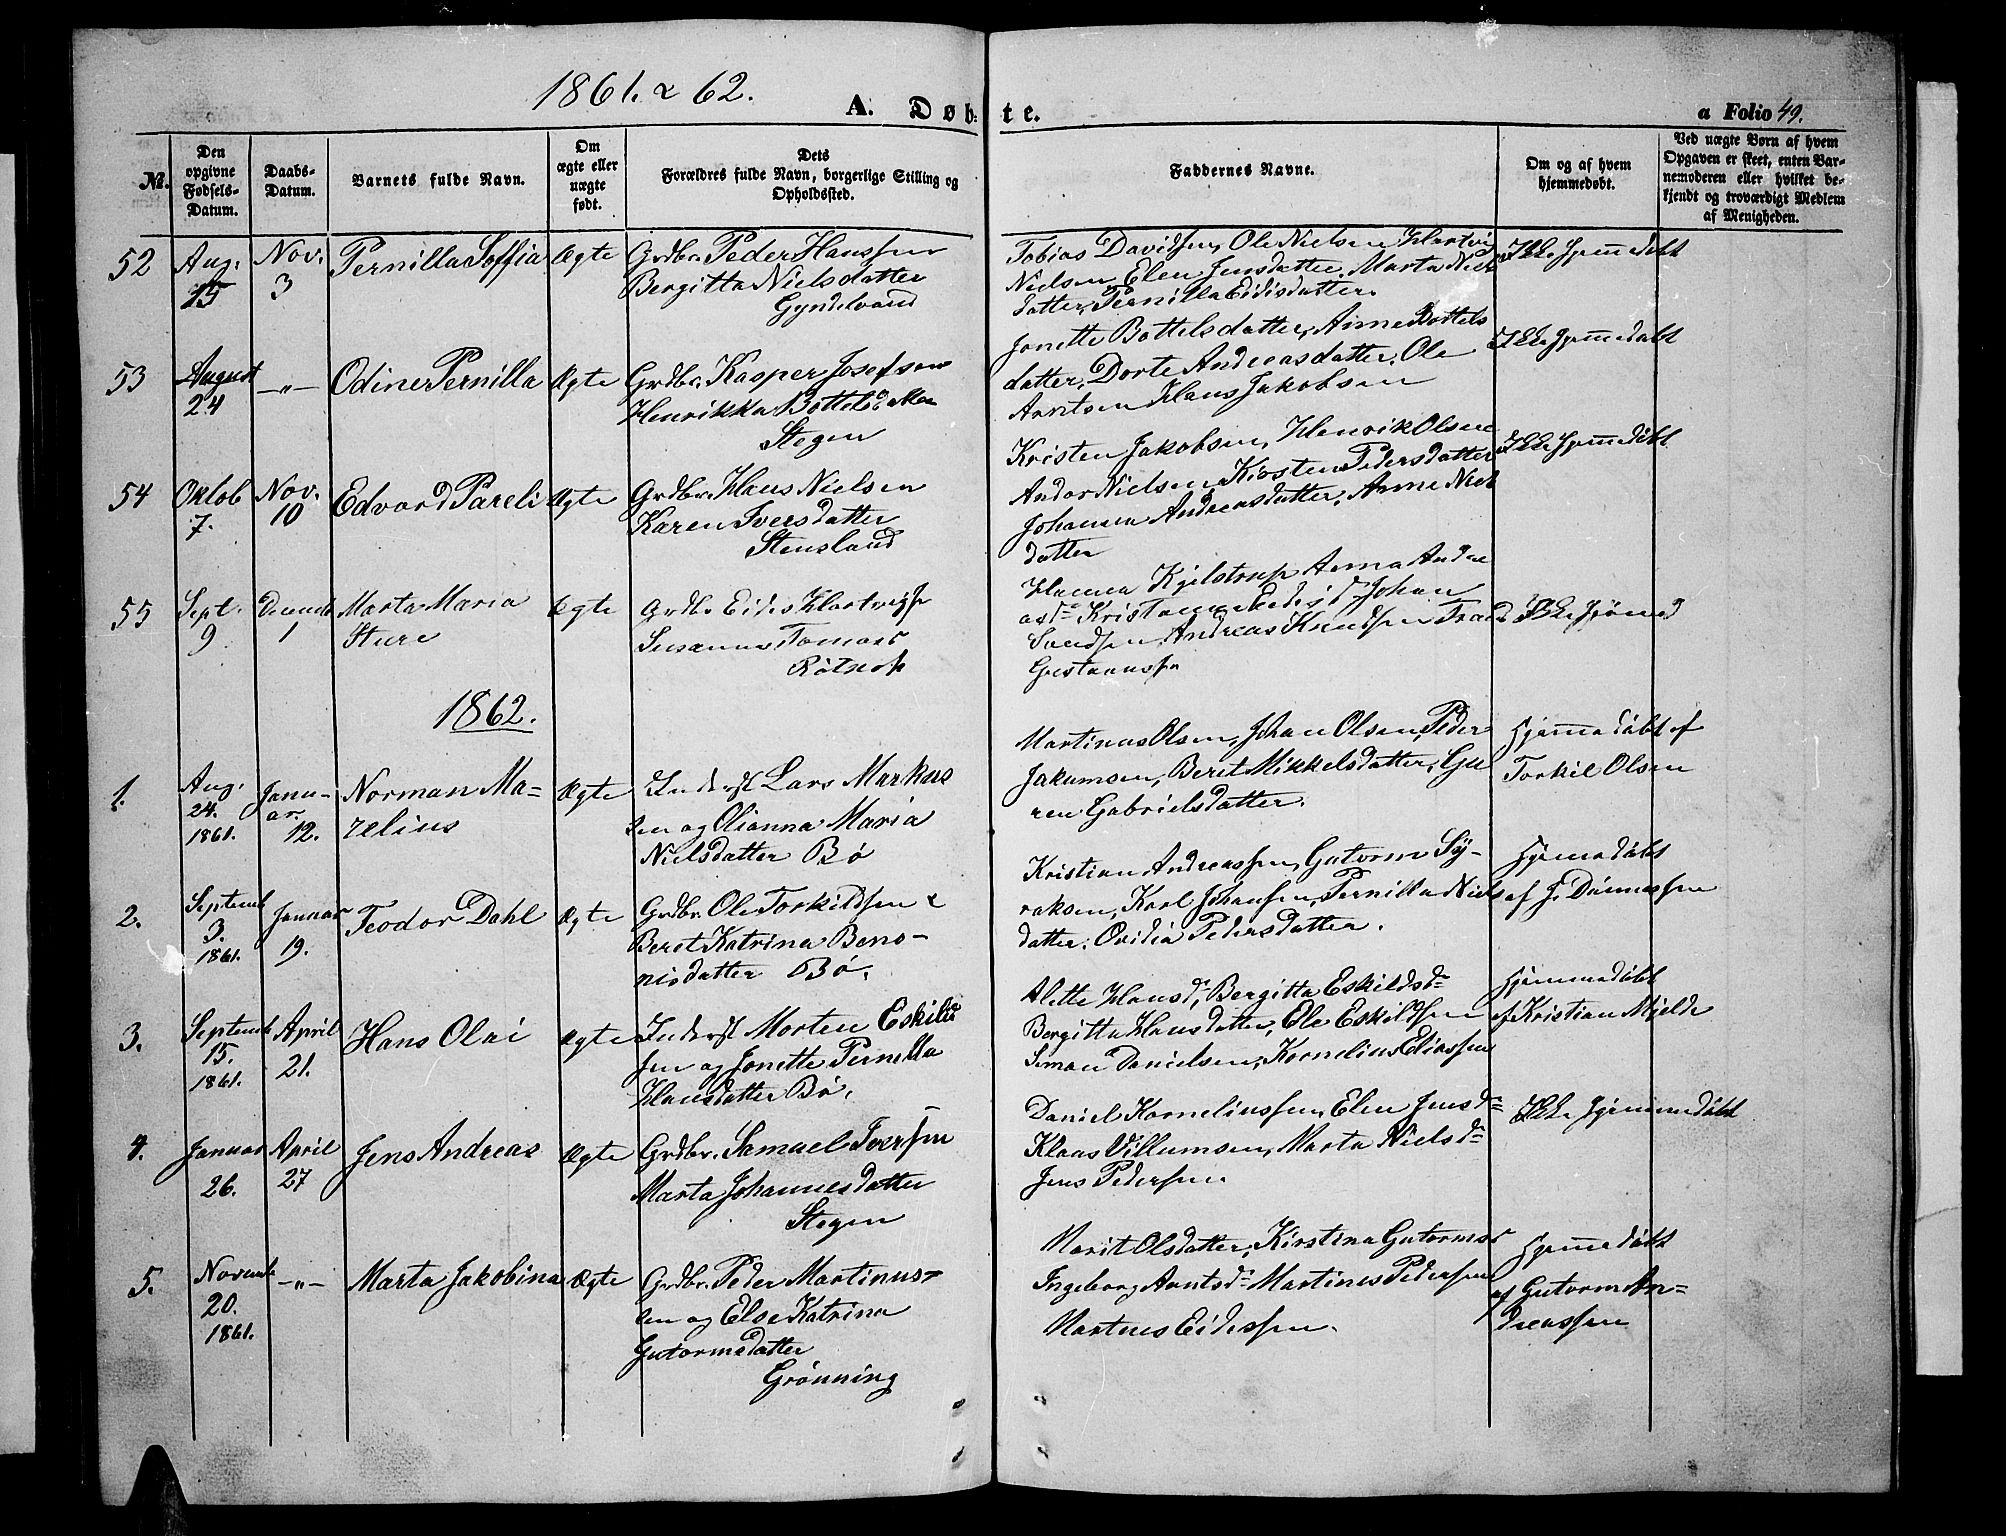 1861. & 62.
A. Døbte.
a Folio 49.
No.
Den opgivne Fødsels-Datum.
Daabs-Datum.
Barnets fulde Navn.
Om ægte eller uægte født.
Dets Forældres fulde Navn, borgerlige Stilling og Opholdssted.
Faddernes Navne.
Om og af hvem hjemmedøbt.
Ved uægte Børn af hvem Opgaven er skeet, enten Barnemoderen eller hvilket bekjendt og troværdigt Medlem af Menigheden.
52
Aug. 25
Nov. 3
Pernilla Soffia
Ægte
Grdbr. Peder Hanssen
Bergitta Nielsdatter
Tobias Davidsen, Ole Nielsen
Nielsen Elen Jensdatter. Marta Niels
datter, Pernilla Eidisdatter.
Ikke hjemmedøbt
53
August 24
-"-
Odine Pernilla
Ægte
Grdbr. Kasper Josefsen
Henrikka Bottelsdatter
Stegen
Jonette Bottelsdatter, Anne Bottels
datter, Dorte Andreasdatter. Ole
Arntsen Hans Jakobsen
Ikke hjemmedøbt
54
Oktob 7.
Nov. 10
Edvard Pareli
Ægte
Grdbr. Hans Nielsen
Karen Iversdatter
Stensland
Kristen Jakobsen, Henrik Olsen
Andor Nielsen, Kirsten Pedersdatter
Johanna Andreasdatter, Anne Niels
datter
Ikke hjemmedøbt
55
Sept. 9
Decemb 1
Marta Maria
Sture
Ægte
Grdb. Eides Hartvigsn
Susanna Tomasd
Hanna Kjelstrup Anna Andre
asdr Johan
Svendsen Andreas Knudsen
Gustavussn
Ikke hjemmed
1862.
1.
Aug. 24. 1861.
Januar 12.
Norman Ma-
relius
Ægte
Inderst Lars Markus
sen og Olianna Maria
Nielsdatter Bø
Martinus Olsen, Johan Olsen, Peder
Jakumsen, Beret Mikkelsdatter, Gu
ren Gabrielsdatter.
Hjemmedøbt af
Torkil Olsen
2.
Septemb 3. 1861.
Januar 19.
Teodor Dahl
Ægte
Grdbr. Ole Torkildsen &
Beret Katrina Beno-
nisdatter Bø.
Kristian Andreassen, Gutorm Sy-
raksen, Karl Johansen, Pernilla Niels
datter. Ovidia Pedersdatter.
Hjemmedøbt
af J. Dønnessen
3.
Septemb 15. 1861.
April 21.
Hans Olai
Ægte
Inderst Morten Eskild
sen og Jonette Pernilla
Hansdatter Bø.
Alette Hansdr, Bergitta Eskildsdr
Bergitta Hansdatter, Ole Eskildsen
Simon Danielsen, Kornelius Eliassen
Hjemmedøbt
af Kristian Mjelde
4.
Januar 26.
April 27
Jens Andreas
Ægte
Grdbr. Samuel Iversen
Marta Johannesdatter
Stegen
Daniel Korneliussen, Elen Jensdr
Klaas Villumsen, Marta Nielsdr
Jens Pedersen.
Ikke hjemmedøbt
5.
Novemb 20. 1861.
-"-
Marta Jakobina
Ægte
Grdbr. Peder Martinus-
sen og Else Katrina
Gutormsdatter
Grønning
Marit Olsdatter, Kirstina Gutormsd
Ingeborg Arntsdr Martines Pedersen
Martines Eidessen.
Hjemmedøbt
af Gutorm An-
dreassen